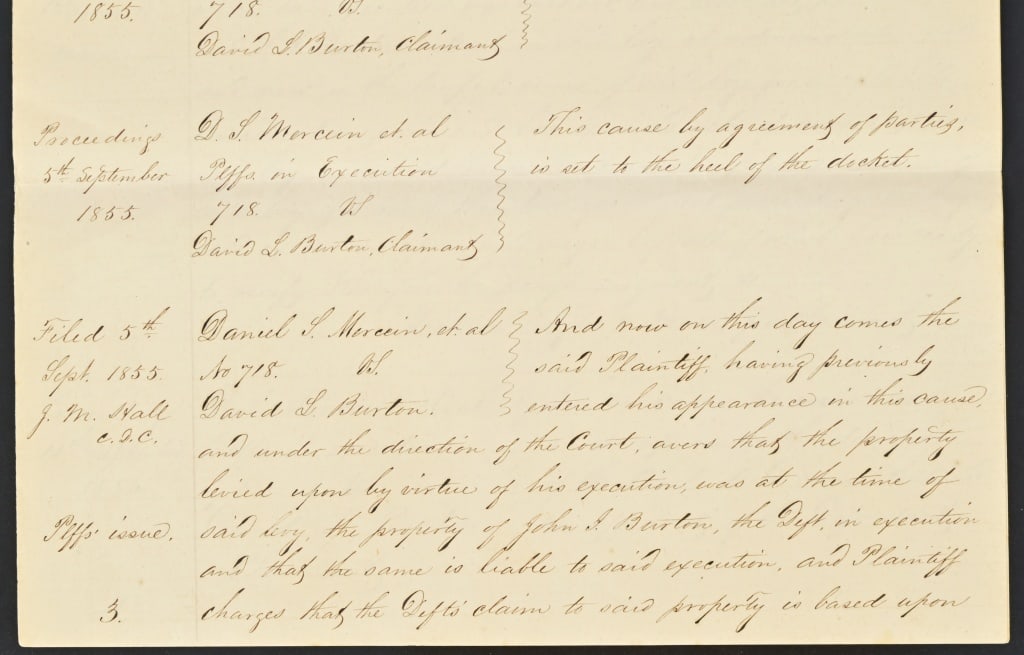 1855. 718. VS.
David L. Burton, Claimant
Proceedings D. S. Mercein et. al This cause by agreement of parties,
5th September Plffs. in Execution is set to the heel of the docket.
1855. 718. VS
David L. Burton, Claimant
Filed 5th Daniel S. Mercein, et. al And now on this day comes the
Sept. 1855. No 718. VS. said Plaintiff, having previously
J. M. Hall David L. Burton. entered his appearance in this cause,
c.d.c. and under the direction of the Court, avers that the property
levied upon by virtue of his execution, was at the time of
Plffs' issue. said levy, the property of John I. Burton, the Deft. in execution
and that the same is liable to said execution, and Plaintiff
3. charges that the Defts' claim to said property is based upon